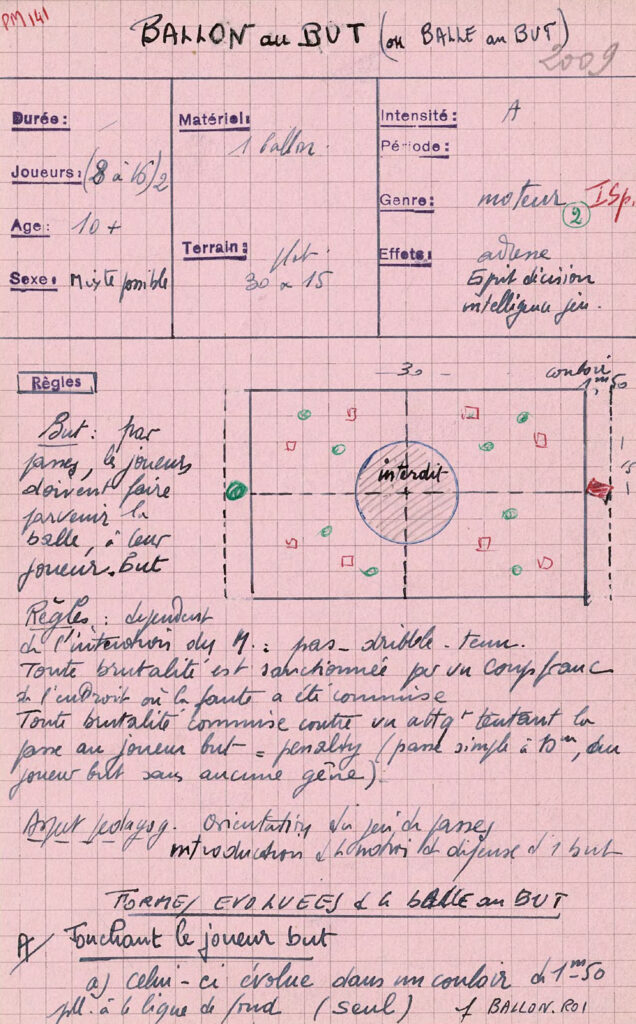 PM 141
BALLON au BUT (ou BALLE au BUT)
2009
Durée :
Joueurs : (8 à 16) 2
Age : 10 +
Sexe : Mixte possible
Matériel :
1 ballon.
Terrain :
plat
30 x 15
Intensité : A
Période :
Genre : moteur ISp.
2
Effets : adresse
Esprit décision
intelligence jeu.
Règles
30
couloir
1m50
15
interdit
But : par
passes, les joueurs
doivent faire
parvenir la
balle, à leur
joueur-but
Règles : dépendent
de l'intention du M. : pas - dribble - tenu.
Toute brutalité est sanctionnée par un coup franc
à l'endroit où la faute a été commise
Toute brutalité commise contre un attqt tentant la
passe au joueur but = penalty (passe simple à 10m, du
joueur but sans aucune gêne).
Aspect pédagog. Orientation du jeu de passes
introduction de la notion de défense d'1 but
FORMES EVOLUEES de la bALLE au BUT
A/ Touchant le joueur but
a) celui-ci évolue dans un couloir de 1m50
pll. à la ligne de fond (seul) cf BALLON.ROI